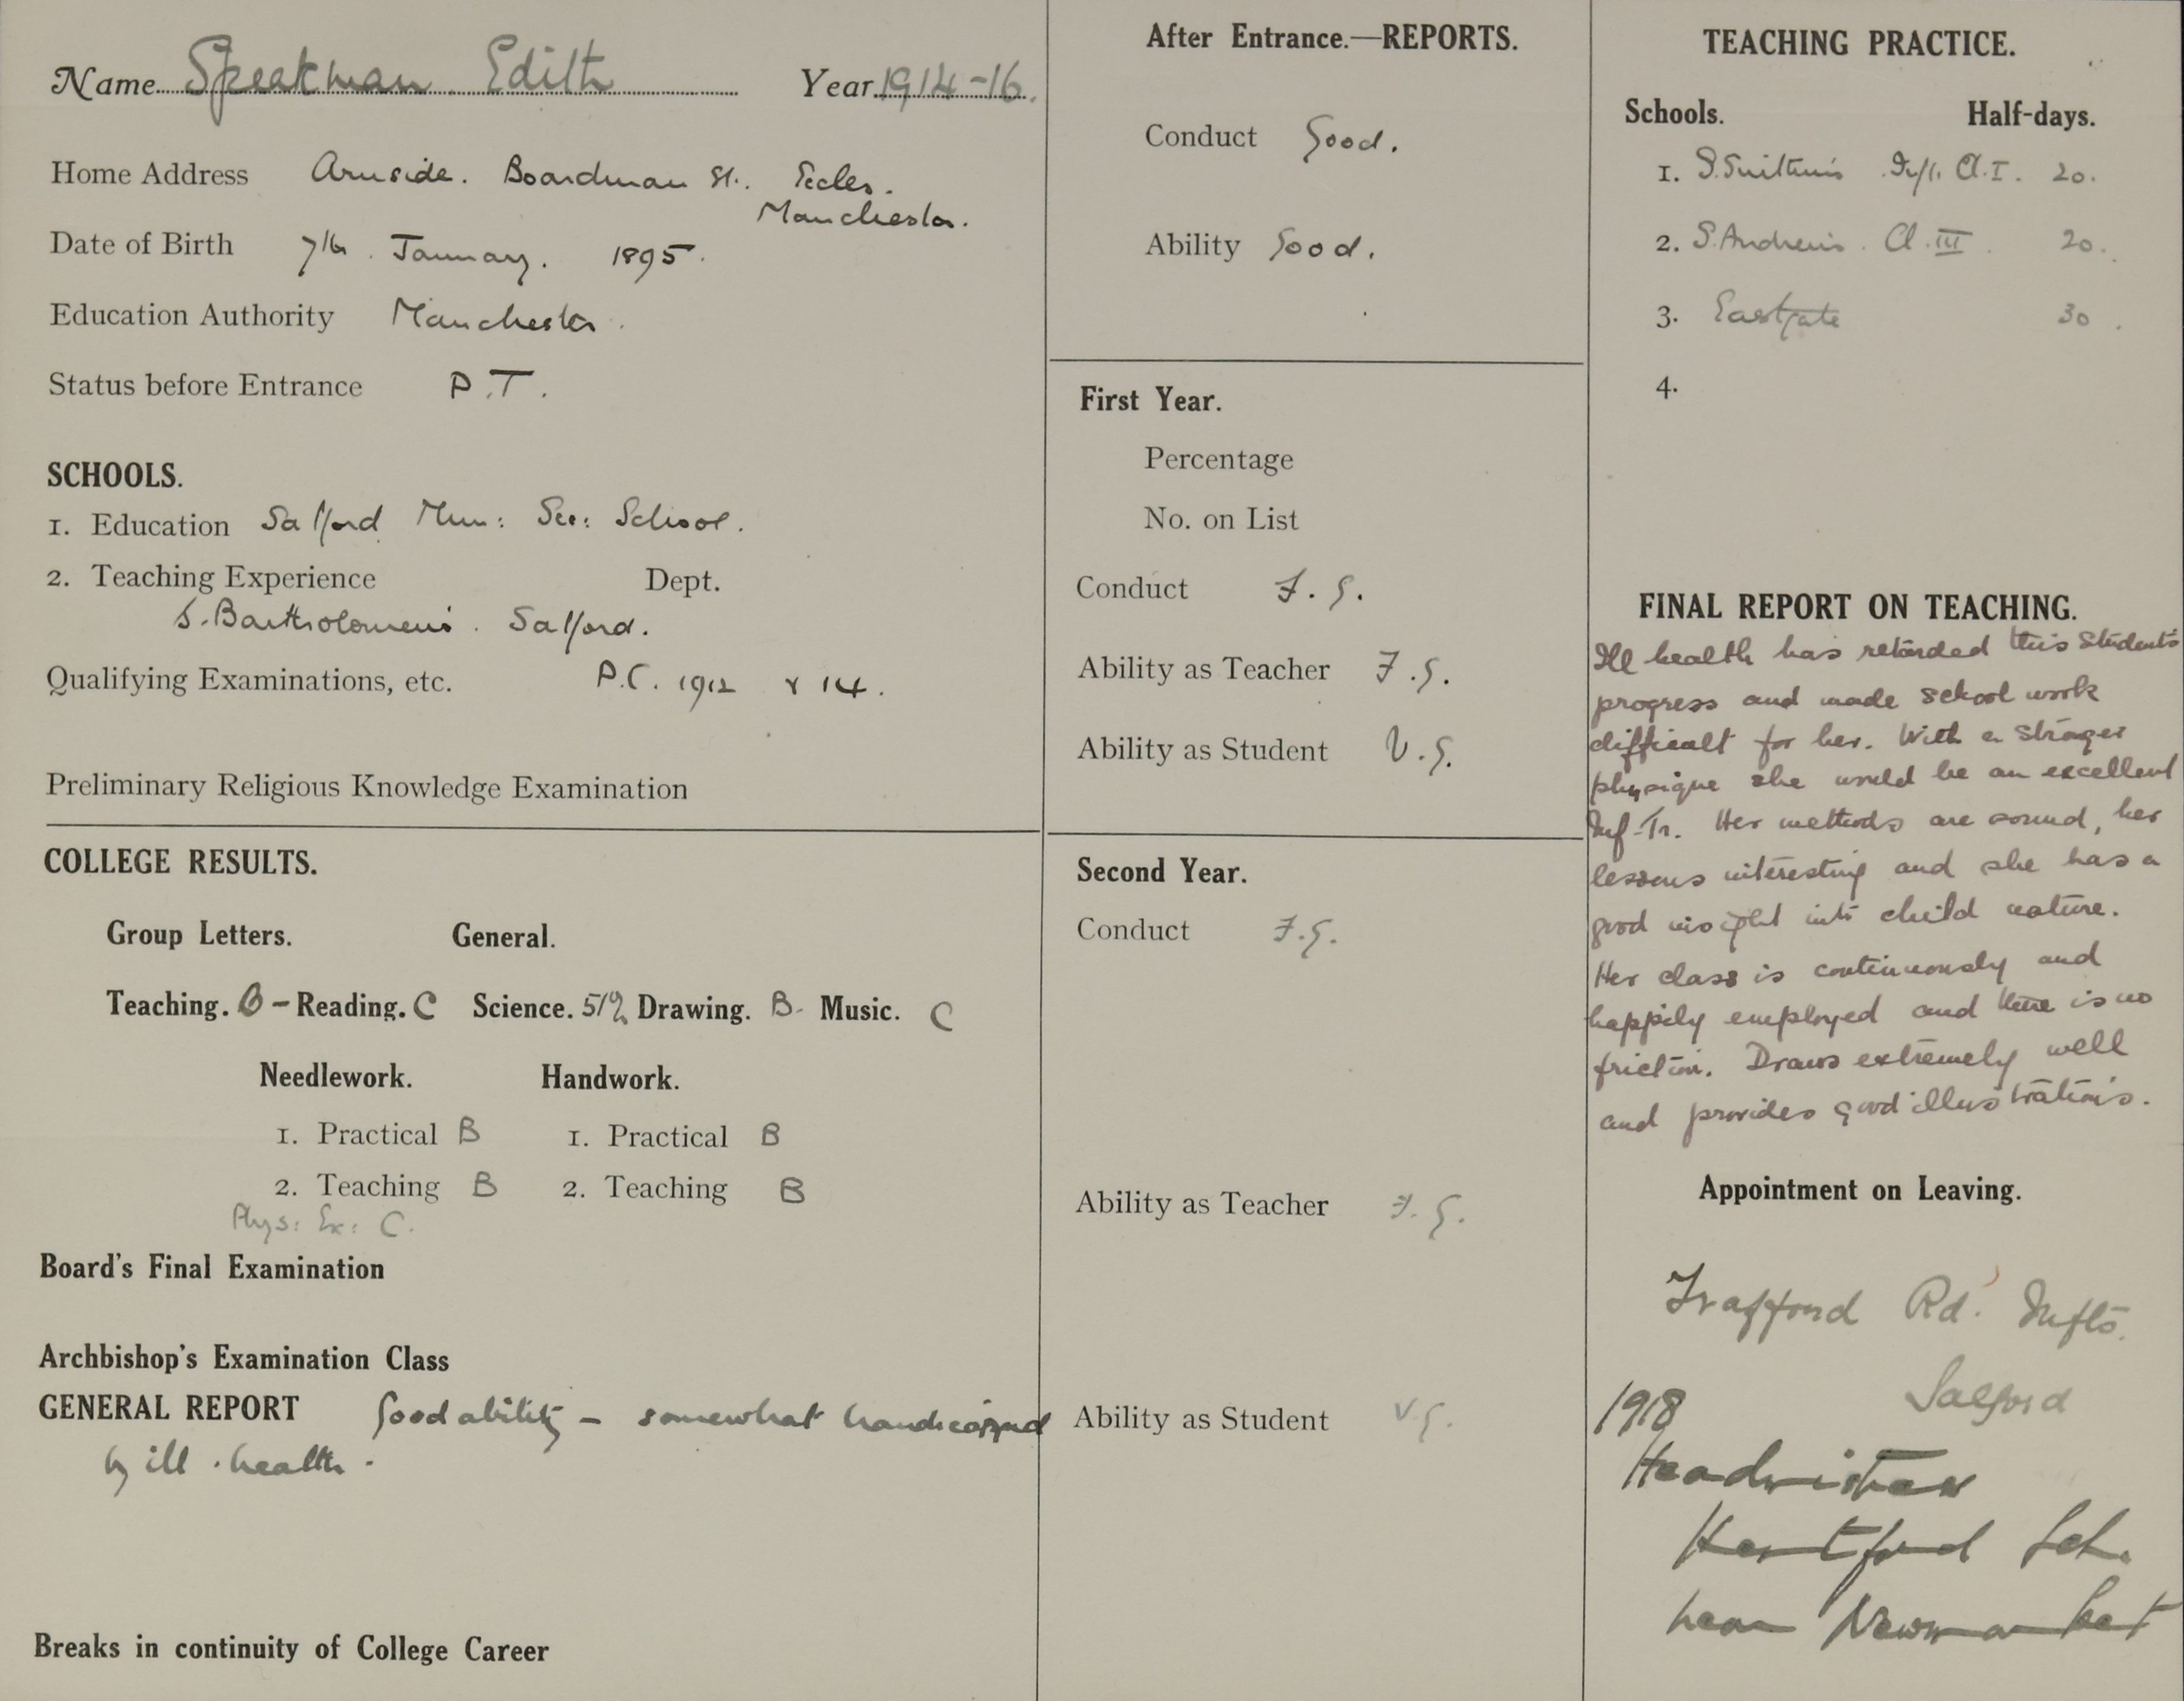 Name Speakman Edith Year 1914-16.
Home Address Arnside. Boardman St. Eccles.
Manchester.
Date of Birth 7th. January. 1895.
Education Authority Manchester.
Status before Entrance P.T.
SCHOOLS.
1. Education Salford Mun: Sec: School.
2. Teaching Experience Dept.
S. Bartholomew's. Salford.
Qualifying Examinations, etc. P.C. 1912 & 14.
Preliminary Religious Knowledge Examination
COLLEGE RESULTS.
Group Letters. General.
Teaching. B – Reading. C Science. Drawing. B. Music. C
Needlework. Handwork.
1. Practical B 1. Practical B
2. Teaching B 2. Teaching B
Phys: Ex: C.
Board's Final Examination
Archbishop's Examination Class
GENERAL REPORT Good ability – somewhat handicapped
by ill-health.
Breaks in continuity of College Career
After Entrance.—REPORTS.
Conduct Good.
Ability Good.
First Year.
Percentage
No. on List
Conduct F.G.
Ability as Teacher F.G.
Ability as Student V.G.
Second Year.
Conduct F.G.
Ability as Teacher F.G.
Ability as Student V.G.
TEACHING PRACTICE.
Schools. Half-days.
1. S. Swithin's Inf. Cl. I. 20.
2. S. Andrew's. Cl. III. 20.
3. Eastgate 30.
4.
FINAL REPORT ON TEACHING.
Ill health has retarded this student's
progress and made school work
difficult for her. With a stronger
physique she would be an excellent
Inf-Tr. Her methods are sound, her
lessons interesting and she has a
good insight into child nature.
Her class is continuously and
happily employed and there is no
friction. Draws extremely well
and provides good illustrations.
Appointment on Leaving.
Trafford Rd. Infts.
Salford
1918
Headmistress
Kertford Sch.
near Newmarket